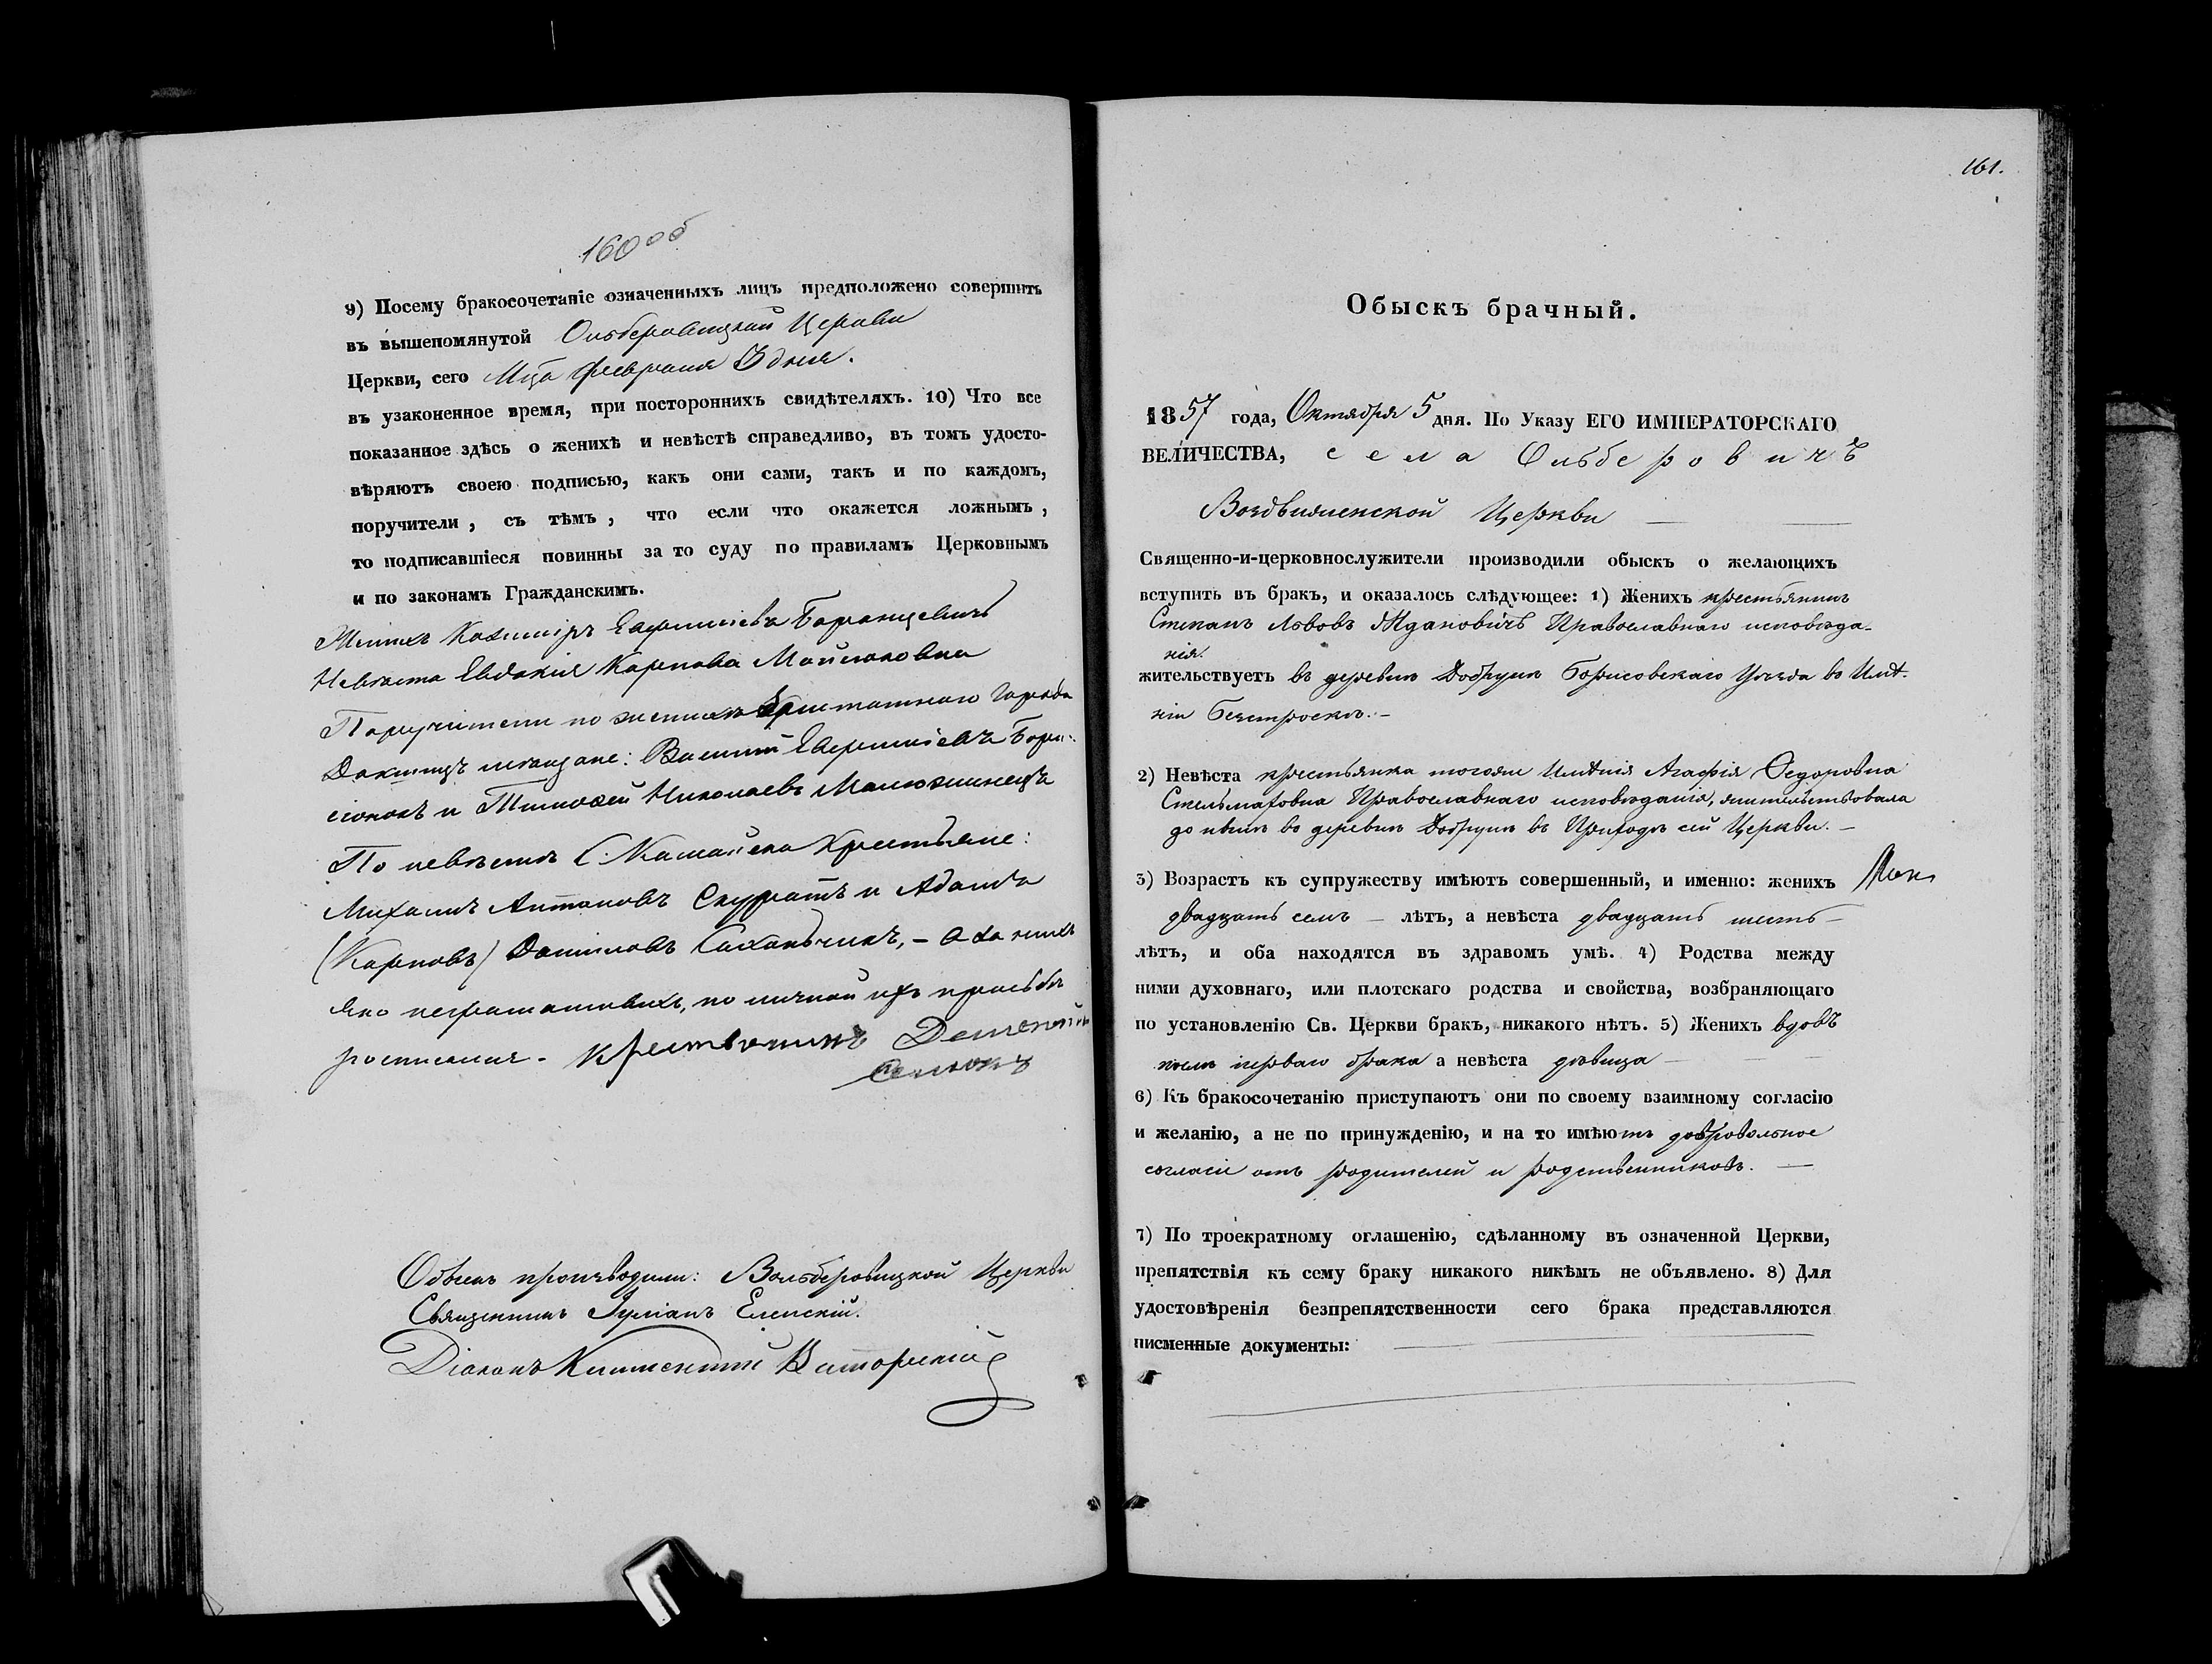 160 об
9) Посему бракосочетаніе означенныхъ лицъ предположено совершить
въ вышепомянутой Ольберовицкой Церкви
Церкви, сего Мца Февраля 3 дня.
въ узаконенное время, при постороннихъ свидѣтеляхъ. 10) Что все
показанное здѣсь о женихѣ и невѣстѣ справедливо, въ томъ удосто-
вѣряютъ своею подписью, какъ они сами, такъ и по каждомъ,
поручители, съ тѣмъ, что если что окажется ложнымъ,
то подписавшіеся повинны за то суду по правиламъ Церковнымъ
и по законамъ Гражданскимъ.
Женихъ Казиміръ Баранцевичъ
Невѣста Евдокія Карпова
Поручители по женихѣ города
Докшицъ мещане:
и Тимофей Николаевъ
По невѣстѣ крестьяне:
Михаилъ Антоновъ Скуратъ и Адамъ
(Карповъ) Даниловъ – а за нихъ
яко неграмотныхъ, по личной ихъ просьбѣ
росписался - Крестьянинъ
Обыскъ производили: Вольберовицкой Церкви
Священникъ Іуліанъ Еленскій.
Діаконъ Климентій
161.
Обыскъ брачный.
1857 года, Октября 5 дня. По Указу ЕГО ИМПЕРАТОРСКАГО
ВЕЛИЧЕСТВА, села Ольберовичъ
Воздвиженской Церкви
Священно-и-церковнослужители производили обыскъ о желающихъ
вступить въ бракъ, и оказалось слѣдующее: 1) Женихъ крестьянинъ
Степанъ Львовъ Ждановичъ Православнаго исповѣда-
нія.
жительствуетъ въ деревнѣ Добрунѣ Борисовскаго Уѣзда во Имѣ-
ніи
2) Невѣста крестьянка тогоже Имѣнія Агафія Ѳедоровна
Стельмаховна Православнаго исповѣданія, жительствовала
до нынѣ во деревнѣ Добрунѣ въ Приходѣ сей Церкви. –
3) Возрастъ къ супружеству имѣютъ совершенный, и именно: женихъ
двадцать семь – лѣтъ, а невѣста двадцать шесть –
лѣтъ, и оба находятся въ здравомъ умѣ. 4) Родства между
ними духовнаго, или плотскаго родства и свойства, возбраняющаго
по установленію Св. Церкви бракъ, никакого нѣтъ. 5) Женихъ вдовъ
послѣ перваго брака а невѣста дѣвица
6) Къ бракосочетанію приступаютъ они по своему взаимному согласію
и желанію, а не по принужденію, и на то имѣютъ добровольное
согласіе отъ родителей и родственниковъ.
7) По троекратному оглашенію, сдѣланному въ означенной Церкви,
препятствія къ сему браку никакого никѣмъ не объявлено. 8) Для
удостовѣренія безпрепятственности сего брака представляются
писменные документы: